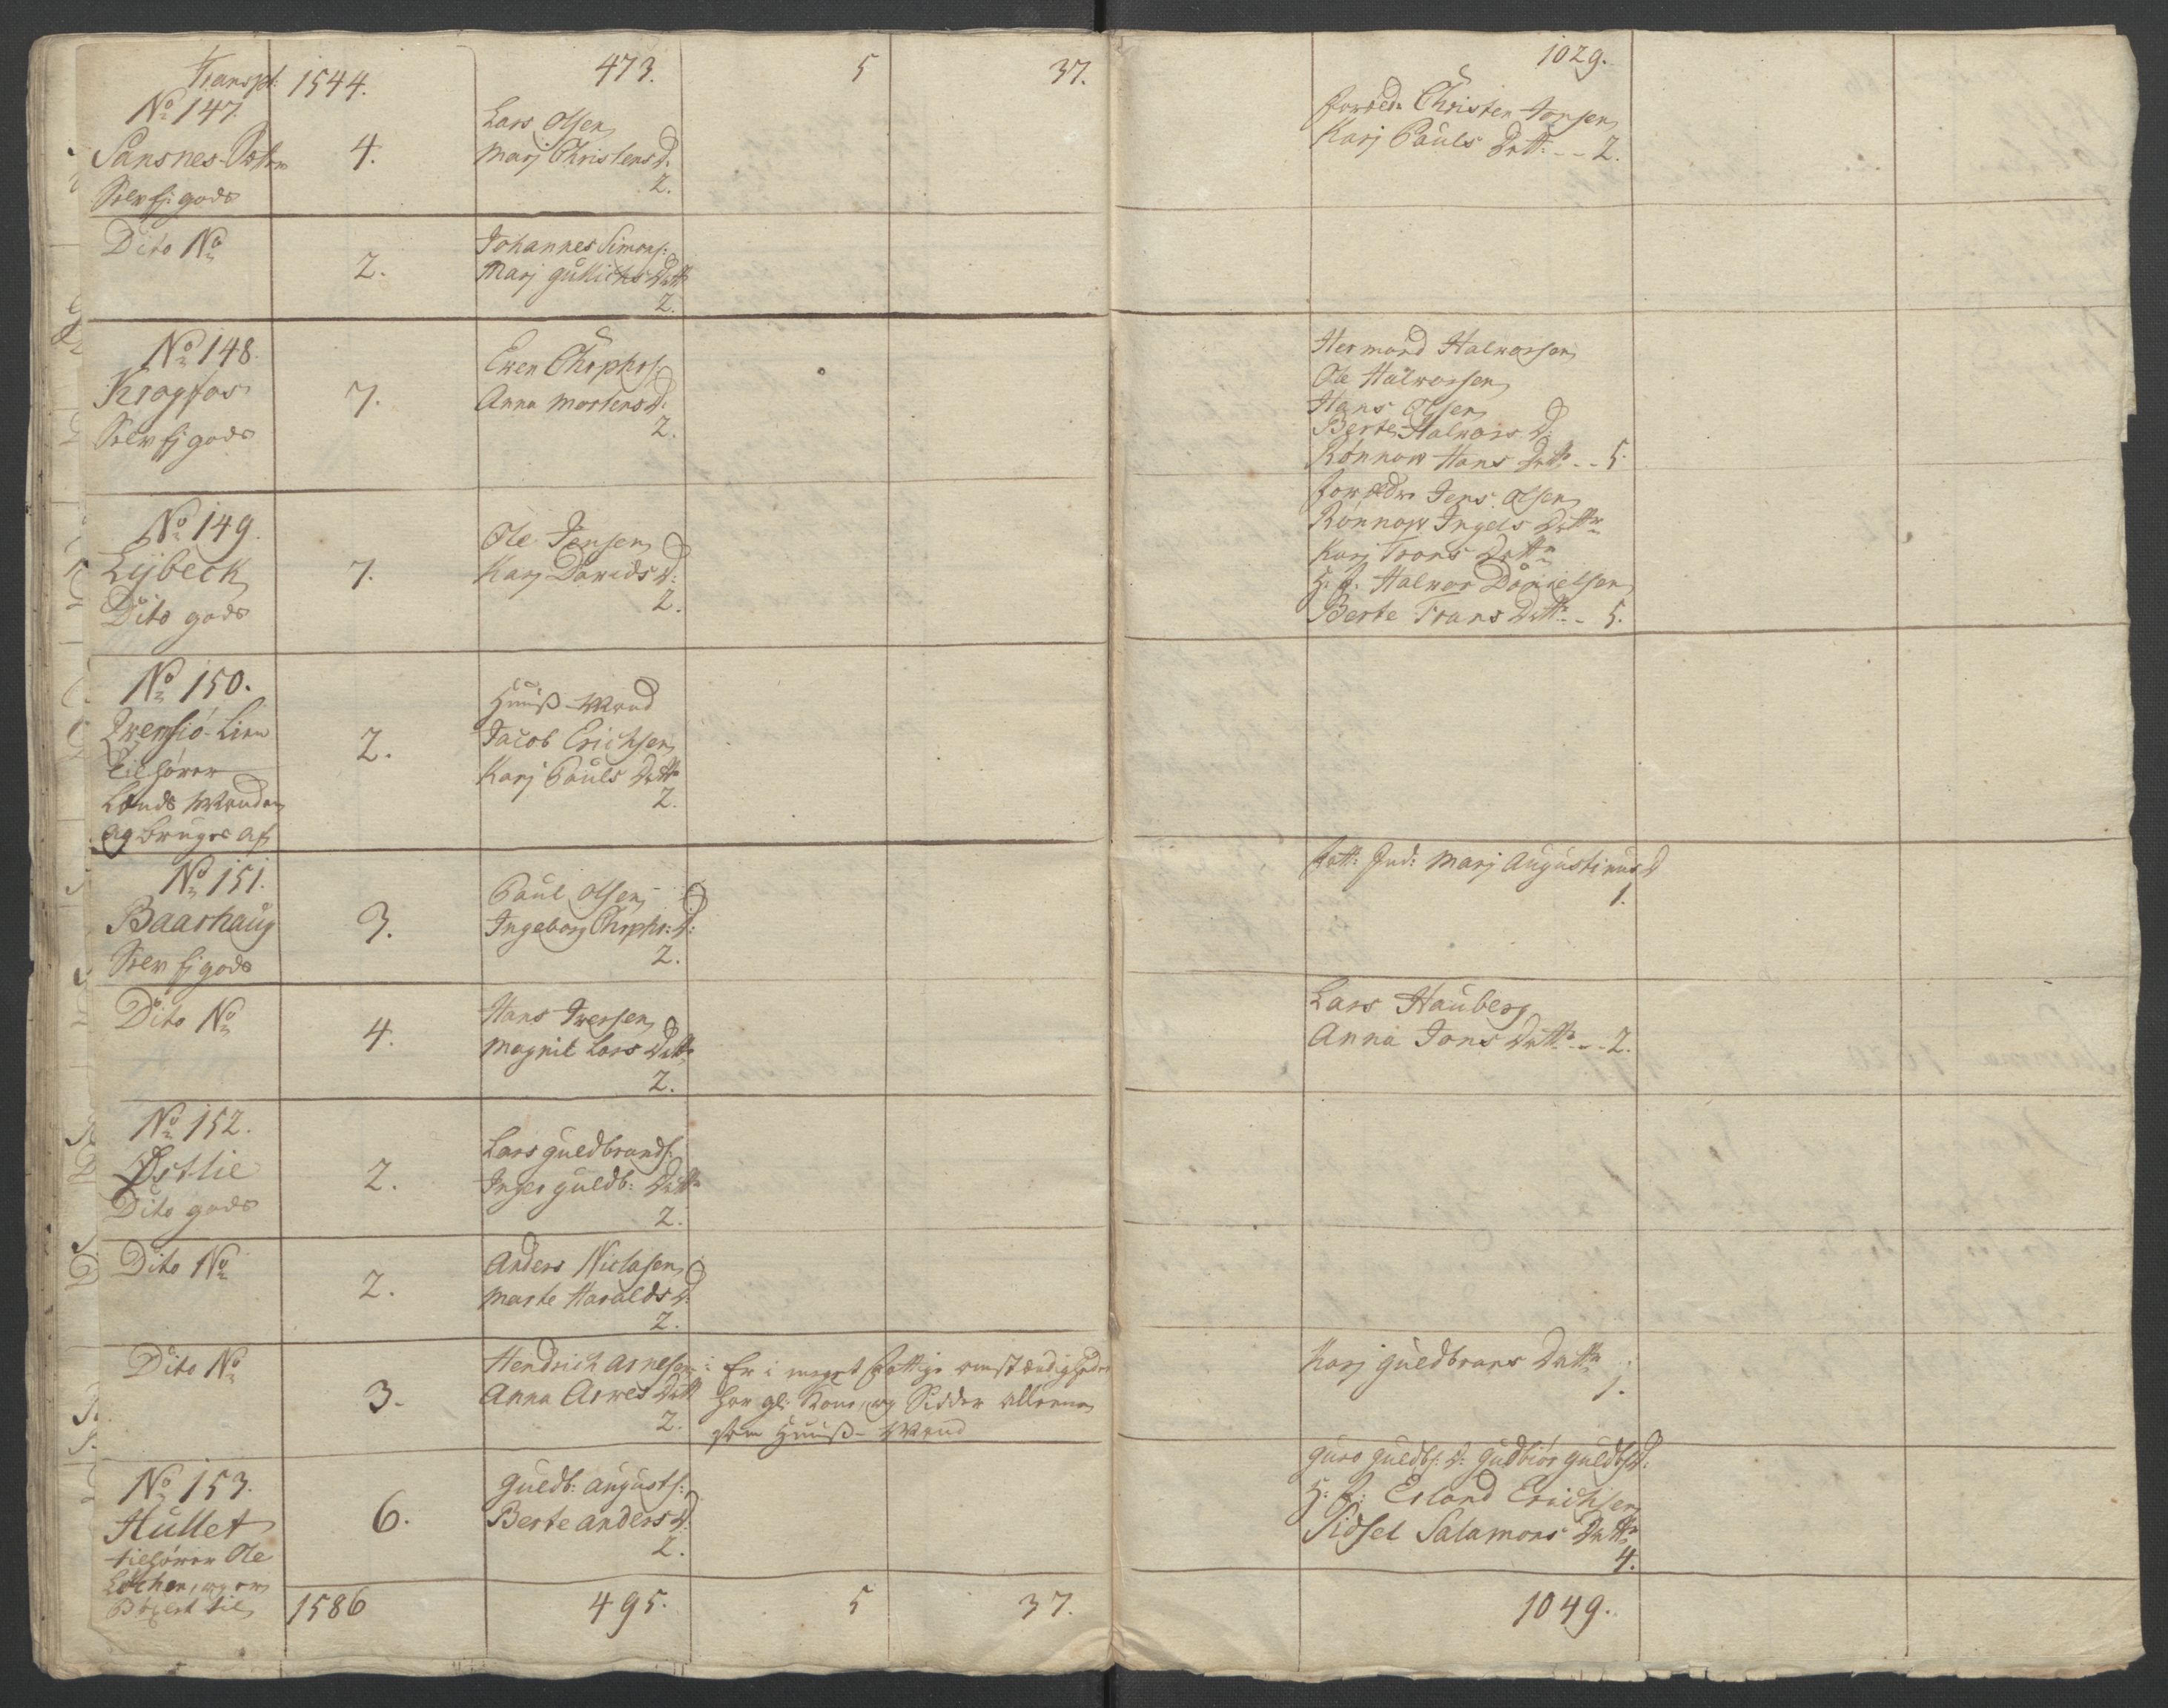 Transpt: 1544. 473. 5 37. 1029.
No 147.
Sansnes-
Selv Ej gods
4.
Lars Olsen
Marj Christens D.
2.
Christen Jonsen
Karj Pauls Datt: - - 2.
Dito No
2.
Johannes Simons:
Marj Gullichs Datt
2.
No 148.
Kragfos
Selv Ej gods
7.
Even Chrphrs:
Anna Mortens D.
2.
Hermand Halvorsen
Ole Halvorsen
Hans Olsen
Berte Halvors D:
Rönnow Hans Datt: - - 5.
No 149.
Lybeck
Dito gods
7.
Ole Jensen
Karj Davids D:
2.
Jens Olsen
Rönnow Ingels Datt
Karj Trons Datt
H: f: Halvor Danielsen
Berte Trons Datt - - 5.
No 150.
tilhører
Lends Manden
og bruges af
2.
Huuß-Mand
Jacob Erichsen
Karj Pauls Datt
2.
No 151.
Baarhaug
Selv Ej gods
3.
Paul Olsen
Ingeborg Chrphr: D:
2.
Ind: Marj Augustinus D
1.
Dito No
4.
Hans Iversen
Magnil Lars Datt
2.
Lars Hauberg
Anna Jons Datt - - 2.
No 152.
Østlie
Dito gods
2.
Lars Guldbrands:
Inger Guldb: Datt
2.
Dito No
2.
Anders Niclasen
Marte Haralds D:
2.
Dito No
3.
Hendrich Arnesen
Anna Arnes Datt
2.
Er i meget fattige omstændigheder
har gl: Kone, og Sidder allene
som Huuß-Mand
Karj Guldbrans Datt
1.
No 153.
Hullet
tilhører Ole
Löchen, og er
Böxlet til
6.
Guldb: Augusts:
Berte Anders D:
2.
Guro Guldbs: D: Gudbiör Guldbs D:
H: f: Erland Erichsen
Sidsel Salamons Datt
4.
1586 495. 5 37. 1049.